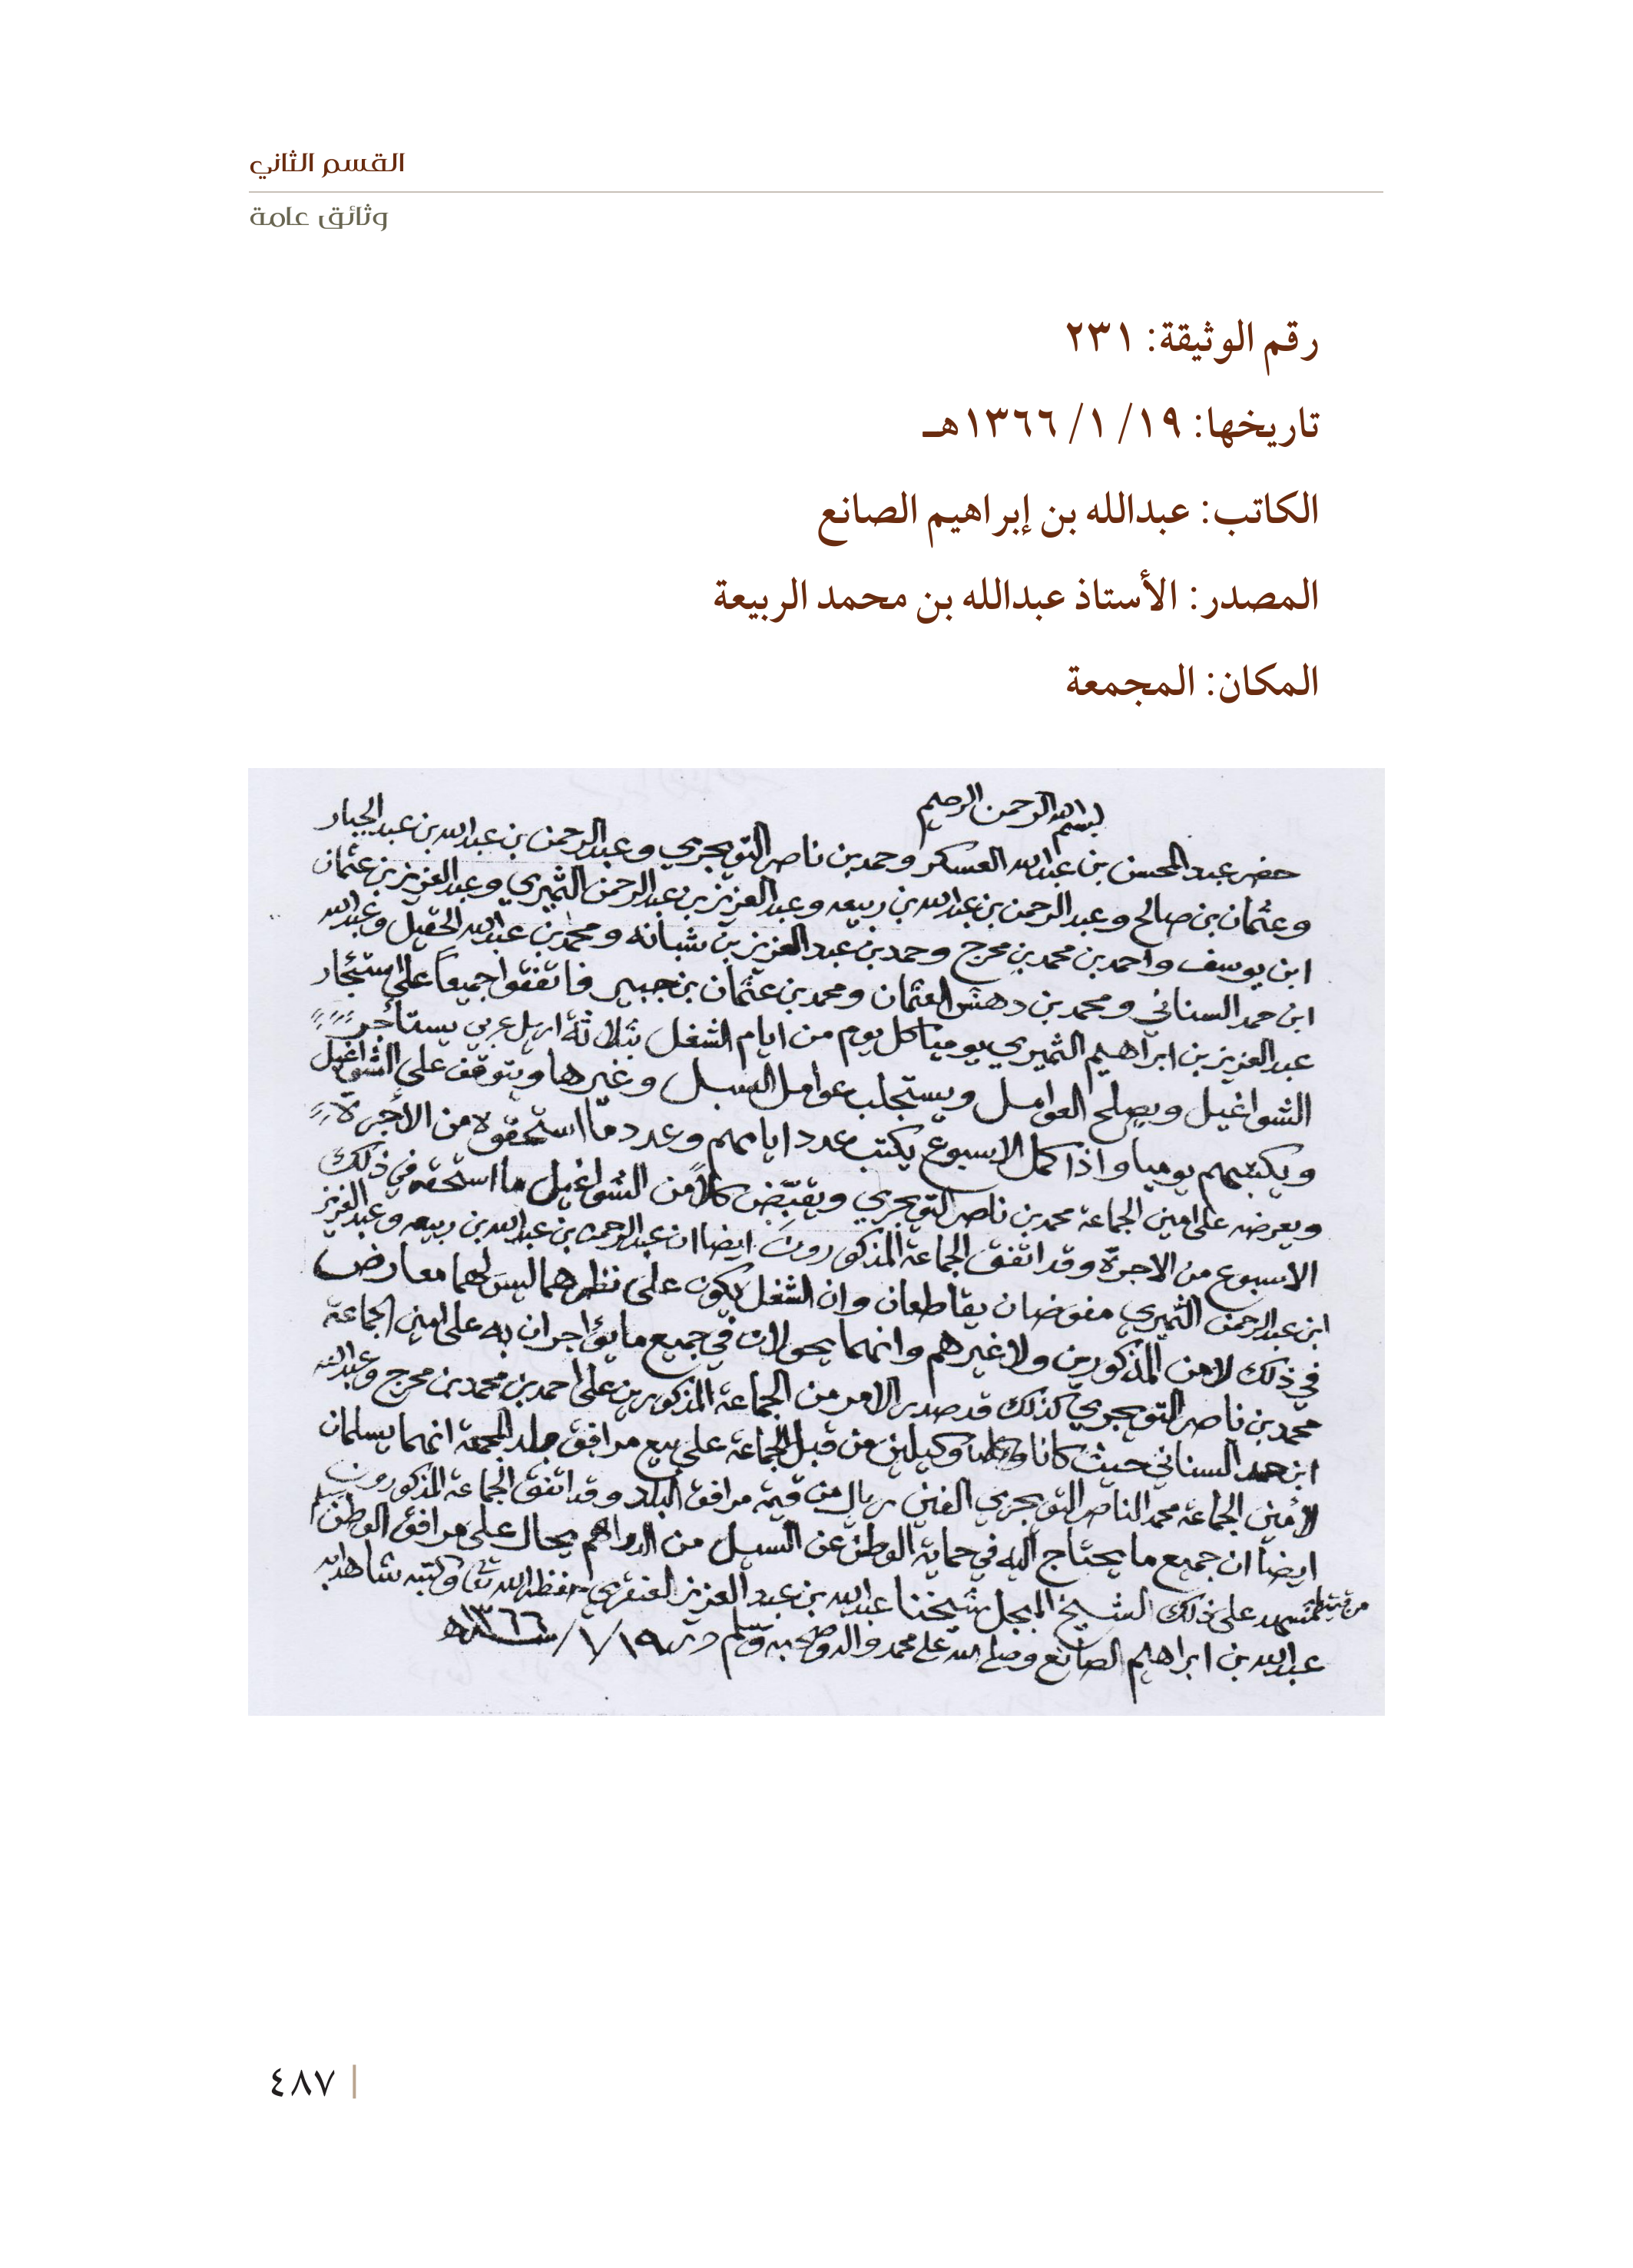 القسم الثاني
وثائق عامة
رقم الوثيقة: ٢٣١
تاريخها: ١٩/ ١/ ١٣٦٦هـ
الكاتب: عبدالله بن إبراهيم الصانع
المصدر: الأستاذ عبدالله بن محمد الربيعة
المكان: المجمعة
بسم الله الرحمن الرحيم
حضر عبد المحسن بن عبدالله العسكر وحمد بن ناصر التويجري وعبدالرحمن بن عبدالله بن عبدالجبار
وعثمان بن صالح وعبدالرحمن بن عبدالله بن ربيعه وعبدالعزيز بن عبدالرحمن الثميري وعبدالعزيز بن عثمان
ابن يوسف واحمد بن محمد بن محرج وحمد بن عبدالعزيز بن شبانه ومحمد بن عبدالله الحقيل وعبدالله
ابن حمد السناني ومحمد بن دهش العثمان ومحمد بن عثمان بن جبير فاتفقوا جميعاً على استئجار
عبدالعزيز بن ابراهيم الثميري يوميا كل يوم من ايام الشغل بثلاثة اريل عربي يستأجر
الشواغيل ويصلح العوامل ويستجلب عوامل السبل وغيرها ويتوقف على الشواغيل
ويكتبهم يوميا واذا كمل الاسبوع يكتب عدد ايامهم وعدد ما استحقوه من الأجرة
ويعرضه على امين الجماعة محمد بن ناصر التويجري ويقبّض كلاً من الشواغيل ما استحقه في ذلك
الاسبوع من الاجرة وقد اتفق الجماعة المذكورون ايضا ان عبدالرحمن بن عبدالله بن ربيعه وعبدالعزيز
ابن عبدالرحمن الثميري مفوضان يقاطعان وان الشغل يكون على نظرهما ليس لهما معارض
في ذلك لا من المذكورين ولا غيرهم وانهما يحولان في جميع ما يؤاجران به على امين الجماعة
محمد بن ناصر التويجري كذلك قد صدر الامر من الجماعة المذكورين على احمد بن محمد بن محرج وعبدالله
ابن حمد السناني حيث كانا وكيلين من قبل الجماعة على بيع مرافق بلد المجمعة انهما يسلمان
لأمين الجماعة محمد الناصر التويجري الفين ريال من قيمة مرافق البلد وقد اتفق الجماعة المذكورون
ايضاً ان جميع ما يحتاج اليه في حماية الوطن عن السيل من الدراهم يحال على مرافق الوطن
شهد على ذلك الشيخ المبجل شيخنا عبدالله بن عبدالعزيز العنقري حفظه الله تعا وكتبه شاهد به
عبدالله بن ابراهيم الصانع وصلى الله على محمد واله وصحبه وسلم ١٩/١/١٣٦٦هـ
٤٨٧